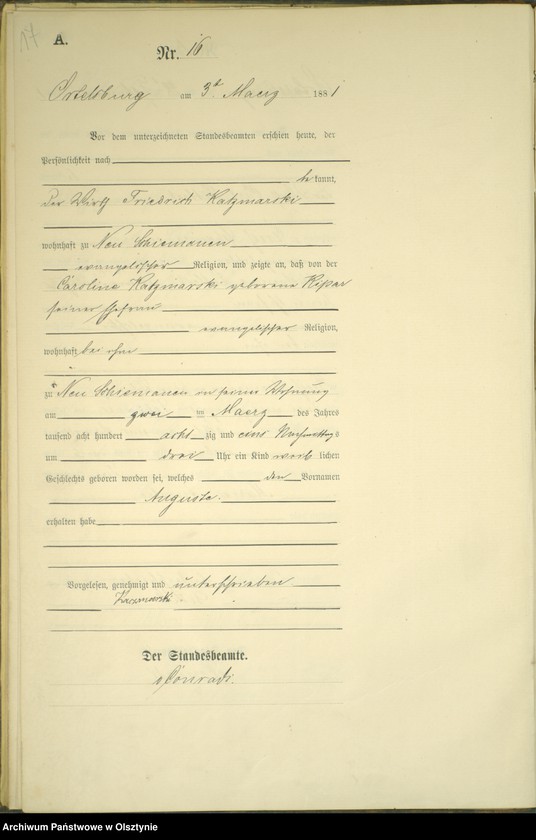 17
A.
Nr. 16
Ortelsburg am 3t Maerz 1881
Vor dem unterzeichneten Standesbeamten erschien heute, der
Persönlichkeit nach
bekannt,
der Wirth Friedrich Katzmarski
wohnhaft zu Neu Schiemanen
evangelischer Religion, und zeigte an, daß von der
Caroline Katzmarski geborene
seiner Ehefrau
evangelischer Religion,
wohnhaft bei ihm
zu Neu Schiemanen in seiner Wohnung
am zwei ten Maerz des Jahres
tausend acht hundert acht zig und eins Nachmittags
um drei Uhr ein Kind weib lichen
Geschlechts geboren worden sei, welches den Vornamen
Auguste
erhalten habe
Vorgelesen, genehmigt und unterschrieben
Der Standesbeamte.
Conradi.
Archiwum Państwowe w Olsztynie